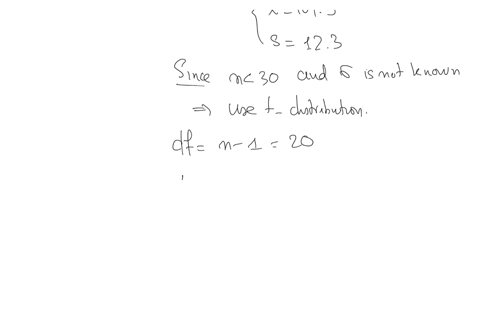 S = 12.3
Since n<30 and σ is not known
⇒ use t-distribution.
df = n-1 = 20